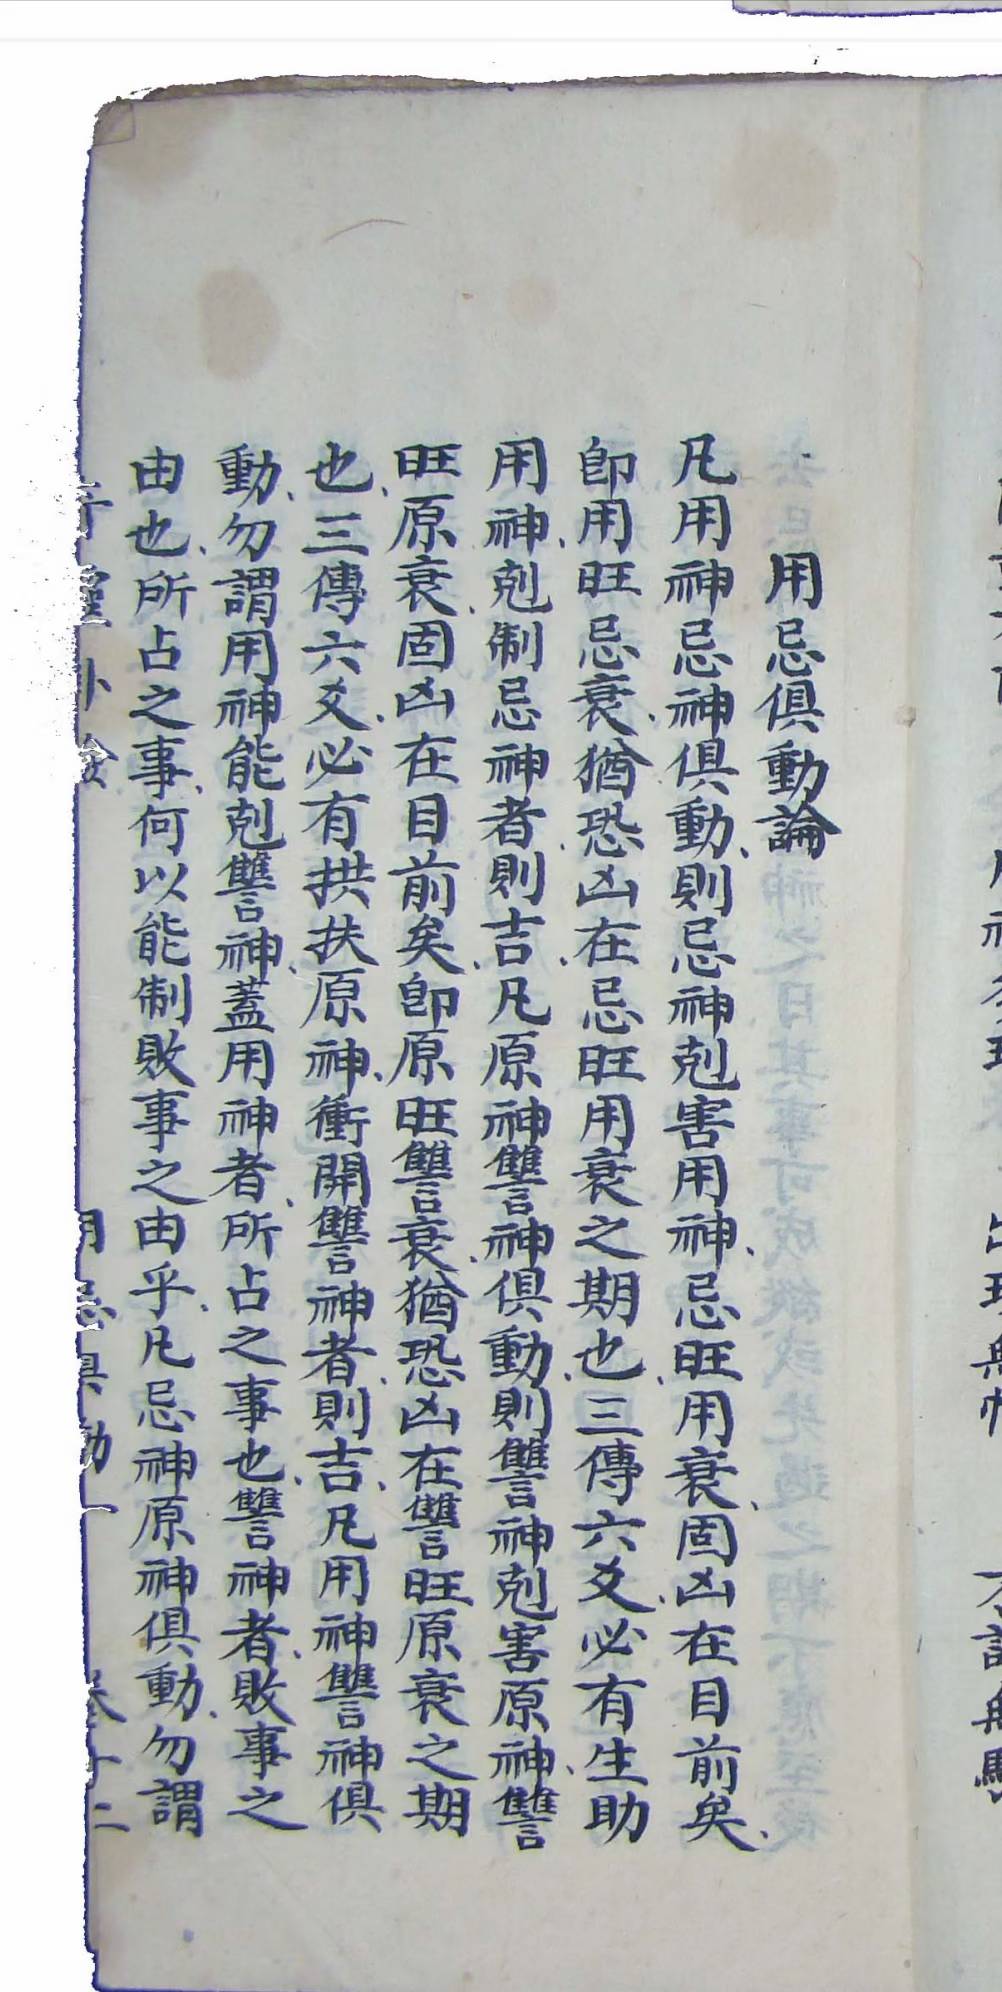 用忌俱動論
凡用神忌神俱動、則忌神剋害用神、忌旺用衰、固凶在目前矣、
卽用旺忌衰、猶恐凶在忌旺用衰之期也、三傳六爻、必有生助
用神、剋制忌神者則吉、凡原神讐神俱動、則讐神剋害原神、讐
旺原衰、固凶在目前矣、卽原旺讐衰、猶恐凶在讐旺原衰之期
也、三傳六爻、必有拱扶原神、衝開讐神者、則吉、凡用神讐神俱
動、勿謂用神能剋讐神、蓋用神者、所占之事也、讐神者、敗事之
由也、所占之事、何以能制敗事之由乎、凡忌神原神俱動、勿謂
用忌俱動 十二